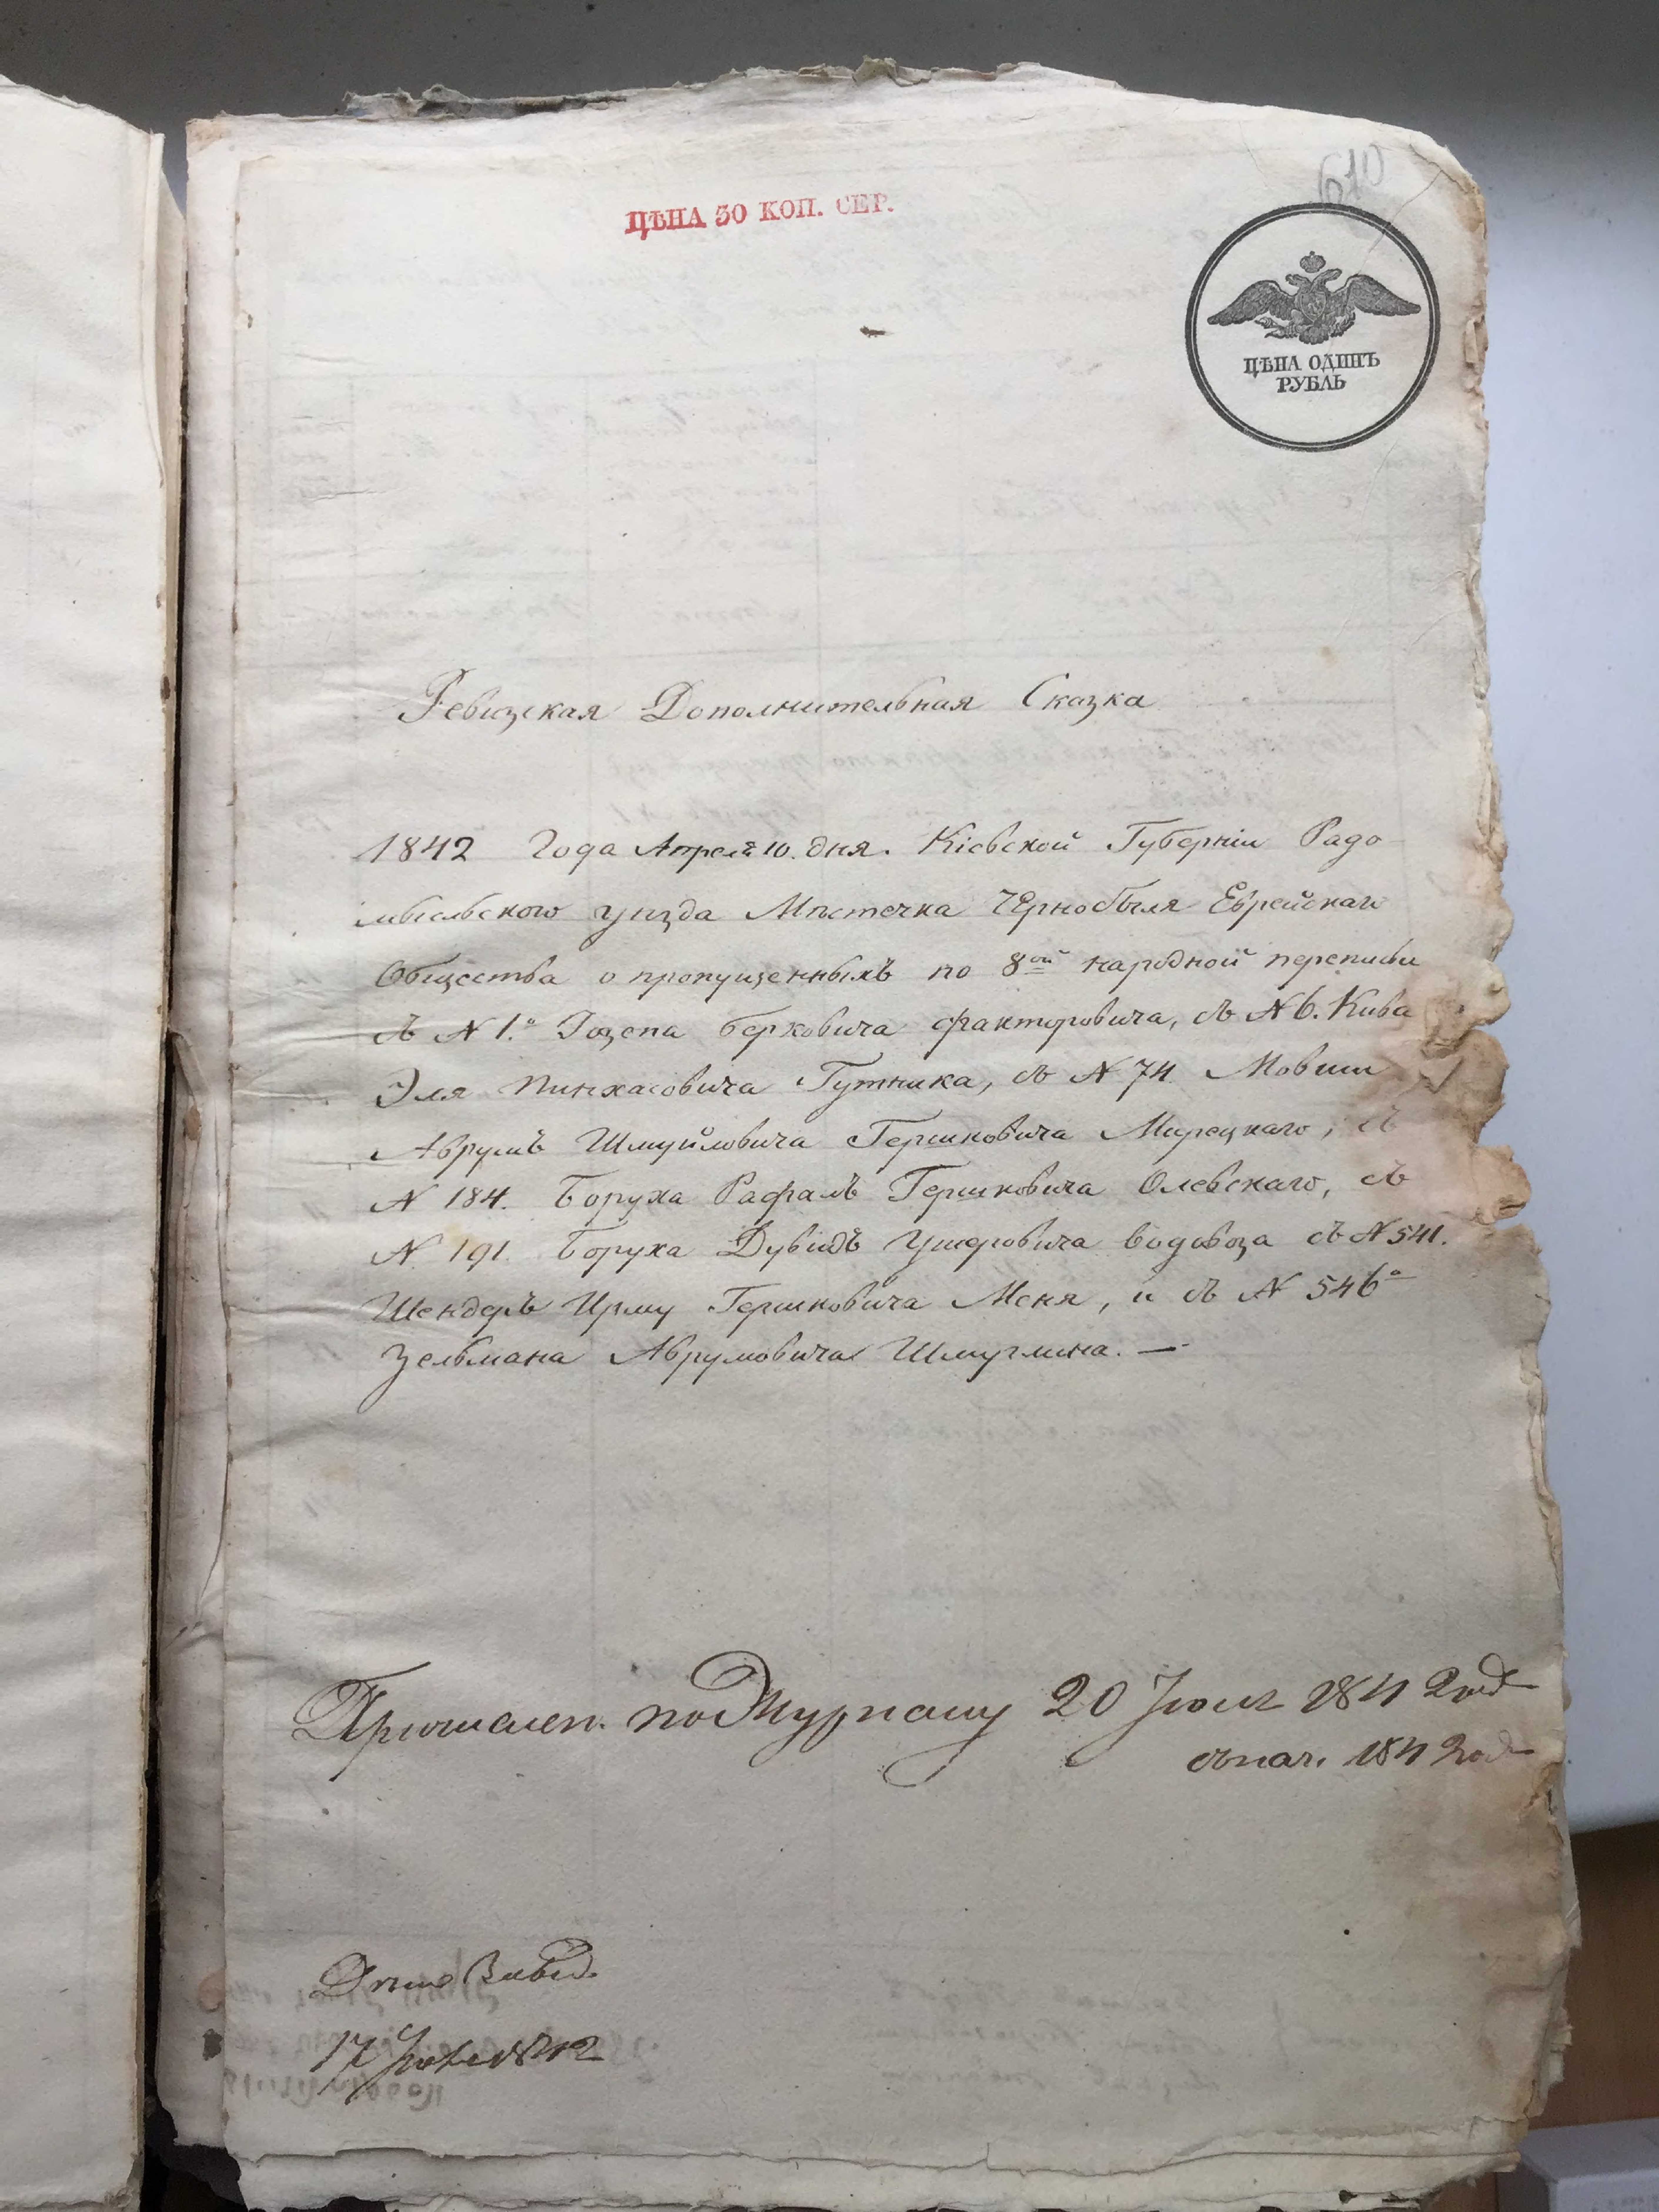 610
ЦѢНА 30 КОП. СЕР.
ЦѢНА ОДИНЪ
РУБЛЬ
Ревизская Дополнительная Сказка
1842 Года Апреля 10. дня. Кіевской Губерніи Радо
мысльского уезда Мѣстечка Чернобыля Еврейскаго
Общества о пропущенныхъ по 8ой народной переписи
съ N 1.о Іозепа Берковича Факторовича, съ N 6. Кива
Эля Пинхасовича Гутника, съ N 74. Мовши
Аврумъ Шмуйловича Гершковича Мирецкаго, съ
N 184. Боруха Рафаль Гершковича Олевскаго, съ
N 191. Боруха Дувидъ Ушеровича Водовоза съ N 541.
Шендеръ Ирму Гершковича Меня, и съ N 546о
Зельмана Аврумовича Шмуглина. —
по Журналу 20 Іюля 1842 год
съ нач. 1842 год
17 1842